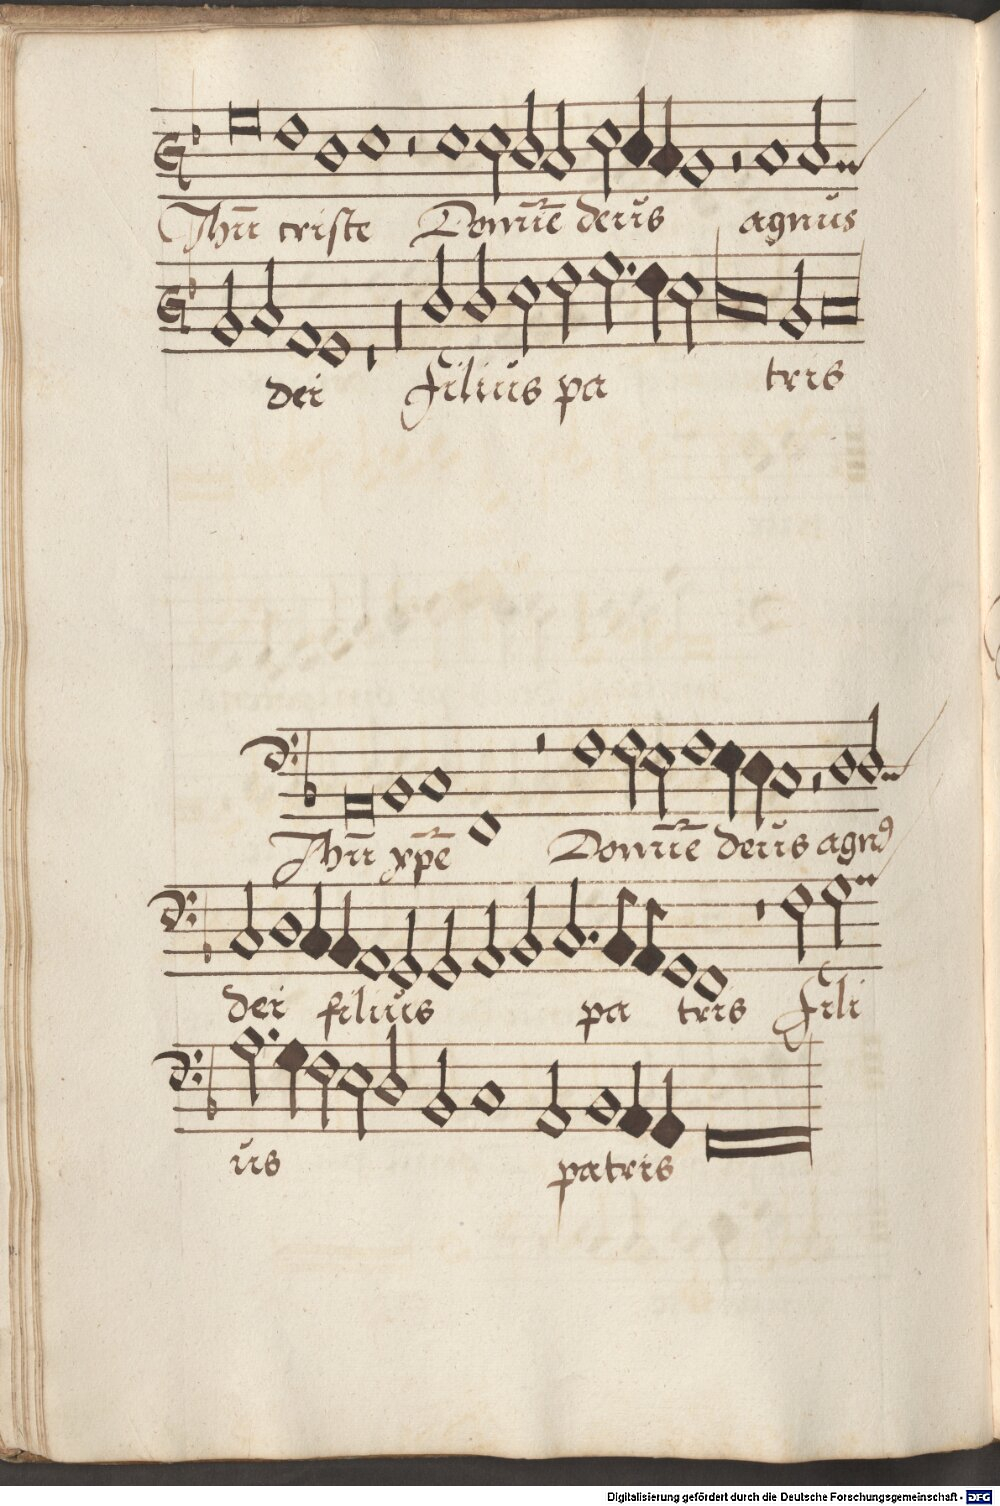 Jhū criste Domīe deus agnus
dei filius pa tris
Jhū xp̄e Domīe deus agnꝰ
dei filius pa tris fili
us patris
Digitalisierung gefördert durch die Deutsche Forschungsgemeinschaft - DFG